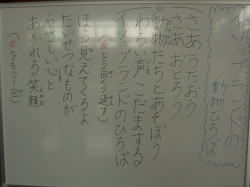 インブランドの
動物ひろば
さあ うたおう
さあ おどろう
☆動物たちとあそぼう
わらい声 こだまする
インブランドのひろば
(☆を2回くり返す)
ほら 見えてくるよ
たいせつなものが
やさしい心と
あふれる笑顔
(☆をもう1回)